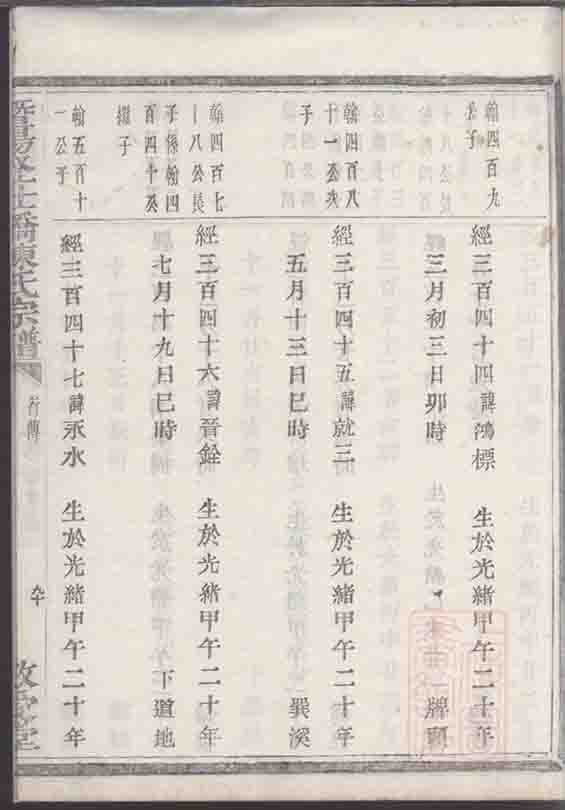 翰四百九
公子
經三百四十四諱鴻標 生於光緒甲午二十年
三月初三日卯時 牌頭
翰四百八
十一公次
子
經三百四十五諱就三 生於光緒甲午二十年
五月十三日巳時 巽溪
翰四百七
十八公長
子係翰四
百四十癸
繼子
經三百四十六諱晉銓 生於光緒甲午二十年
七月十九日巳時 下道地
翰五百十
一公子
經三百四十七諱永水 生於光緒甲午二十年
陳氏宗譜
行傳